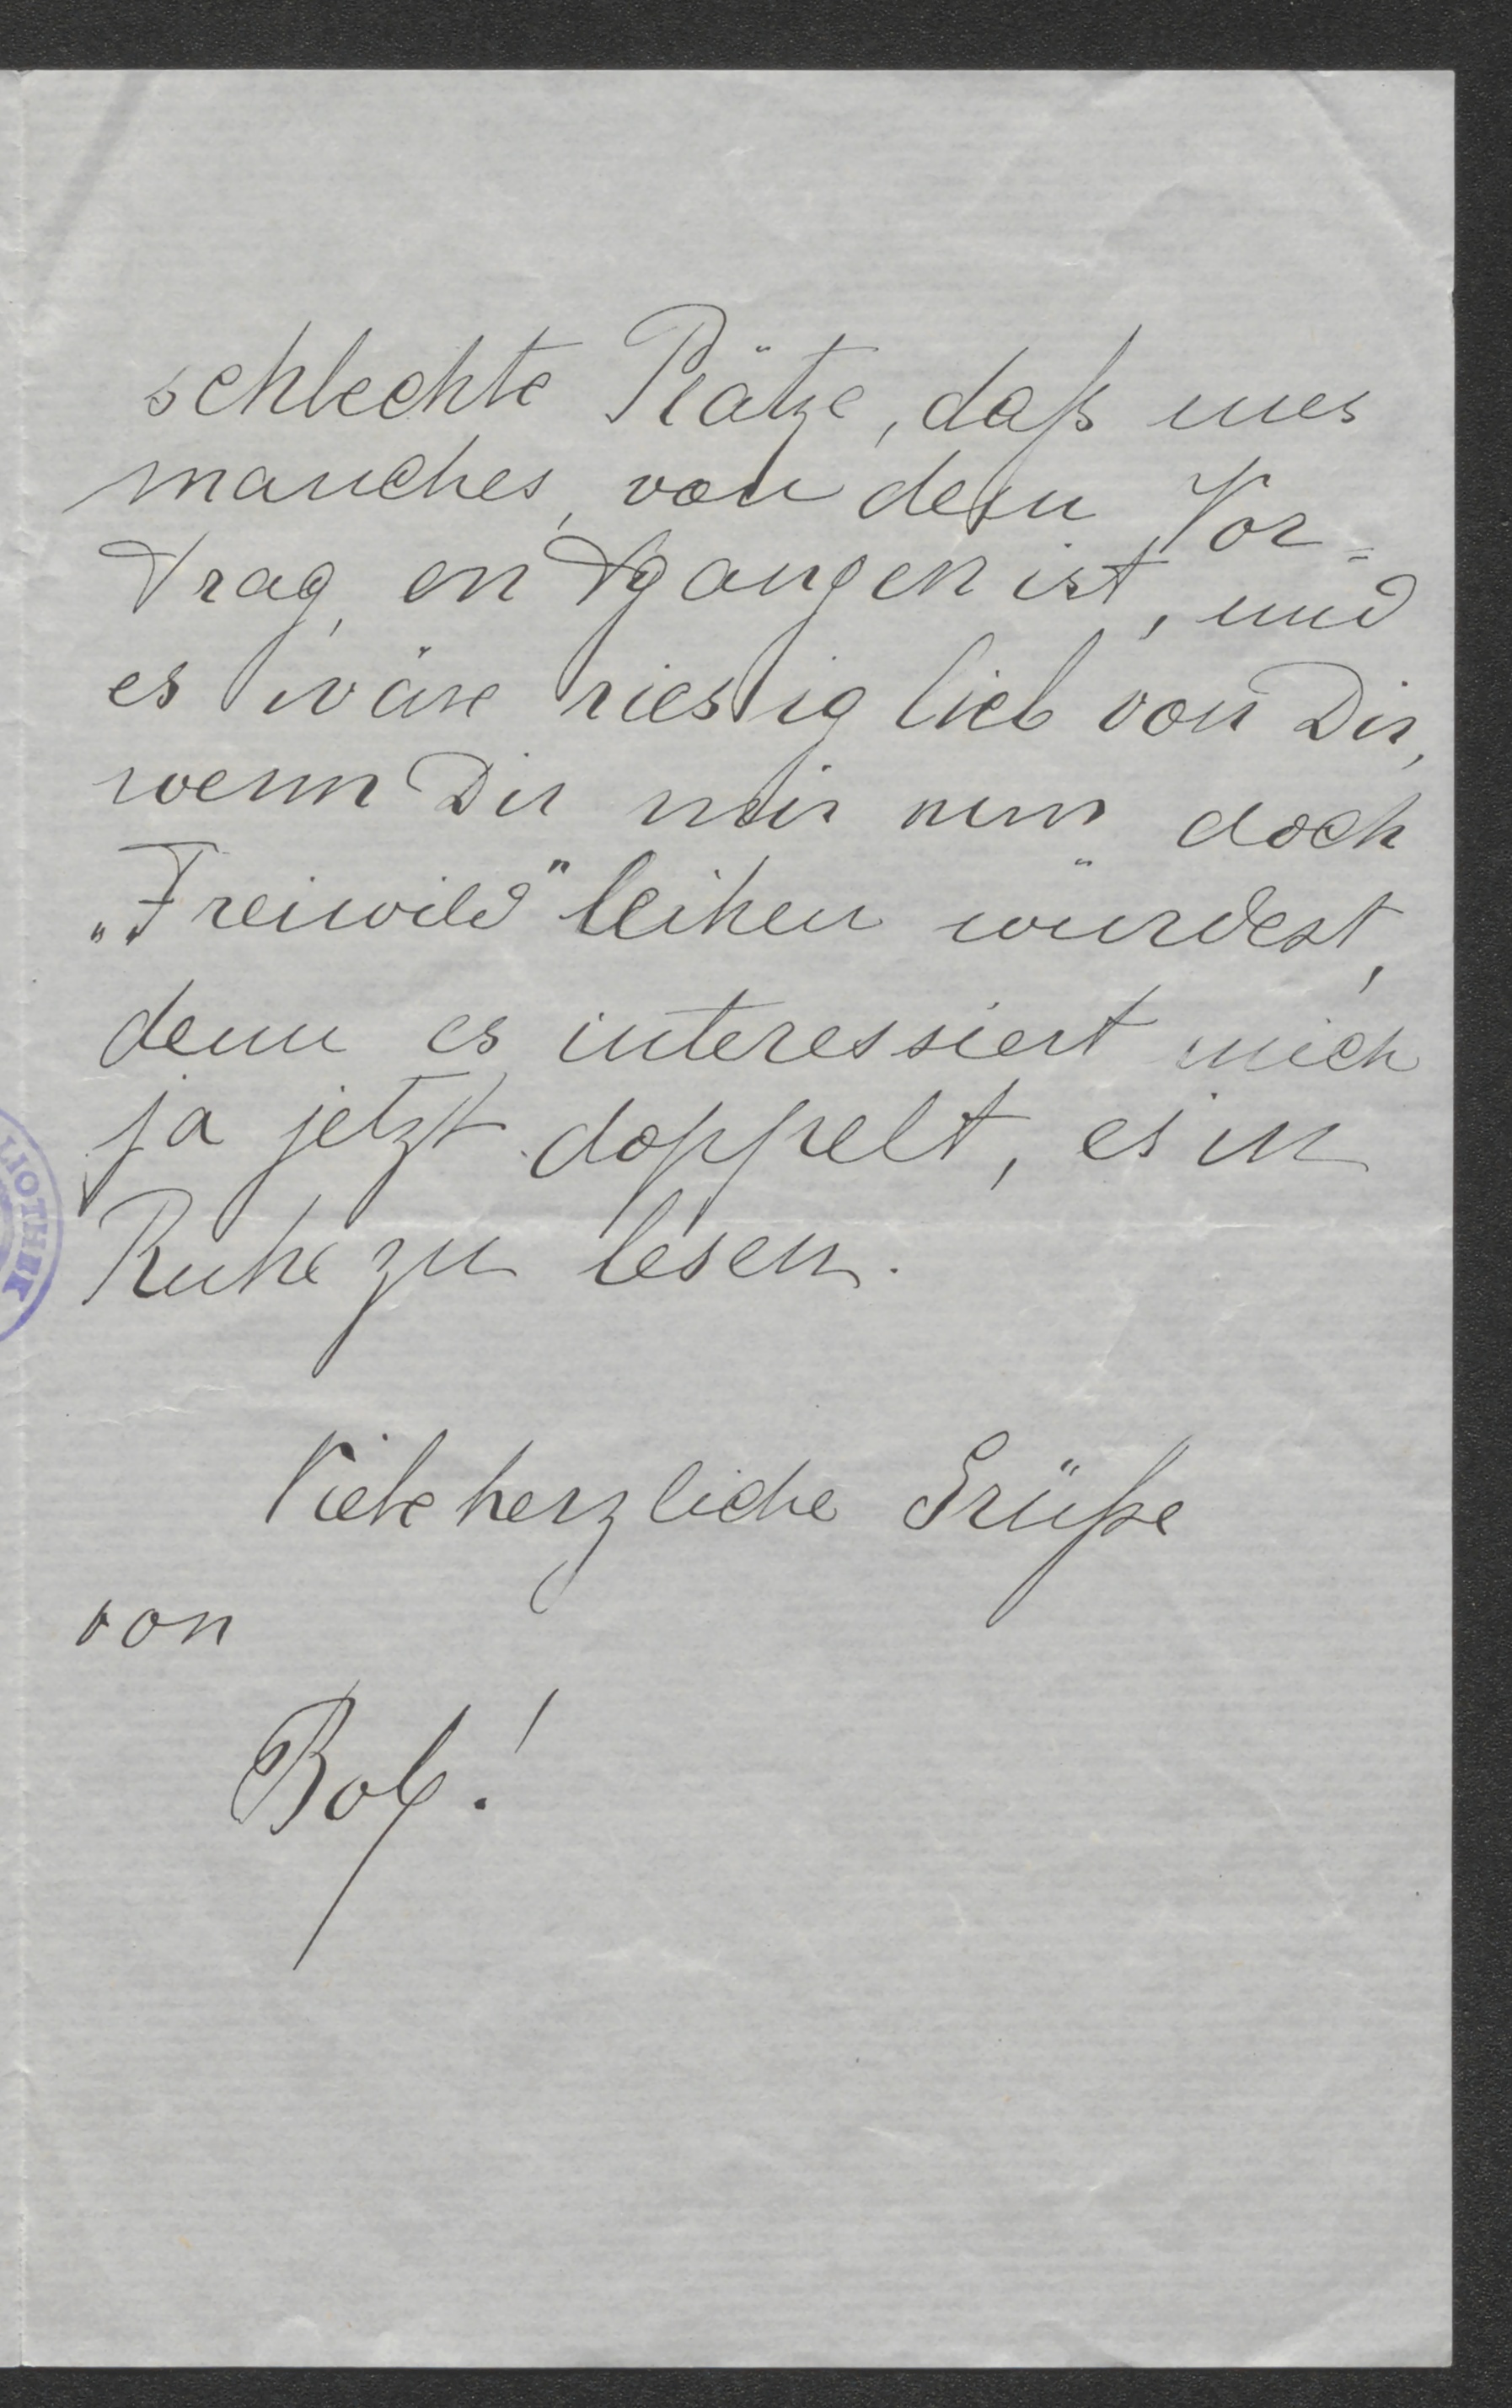 schlechte Plätze, daß uns
manches von dem Vor=
trag entgangen ist, und
es wäre riesig lieb von Dir,
wenn Du mir nun doch
„Freiwild" leihen würdest,
denn es interessiert mich
ja jetzt doppelt, es in
Ruhe zu lesen.
Viele herzliche Grüße
von
Bob!
LIOTHEK